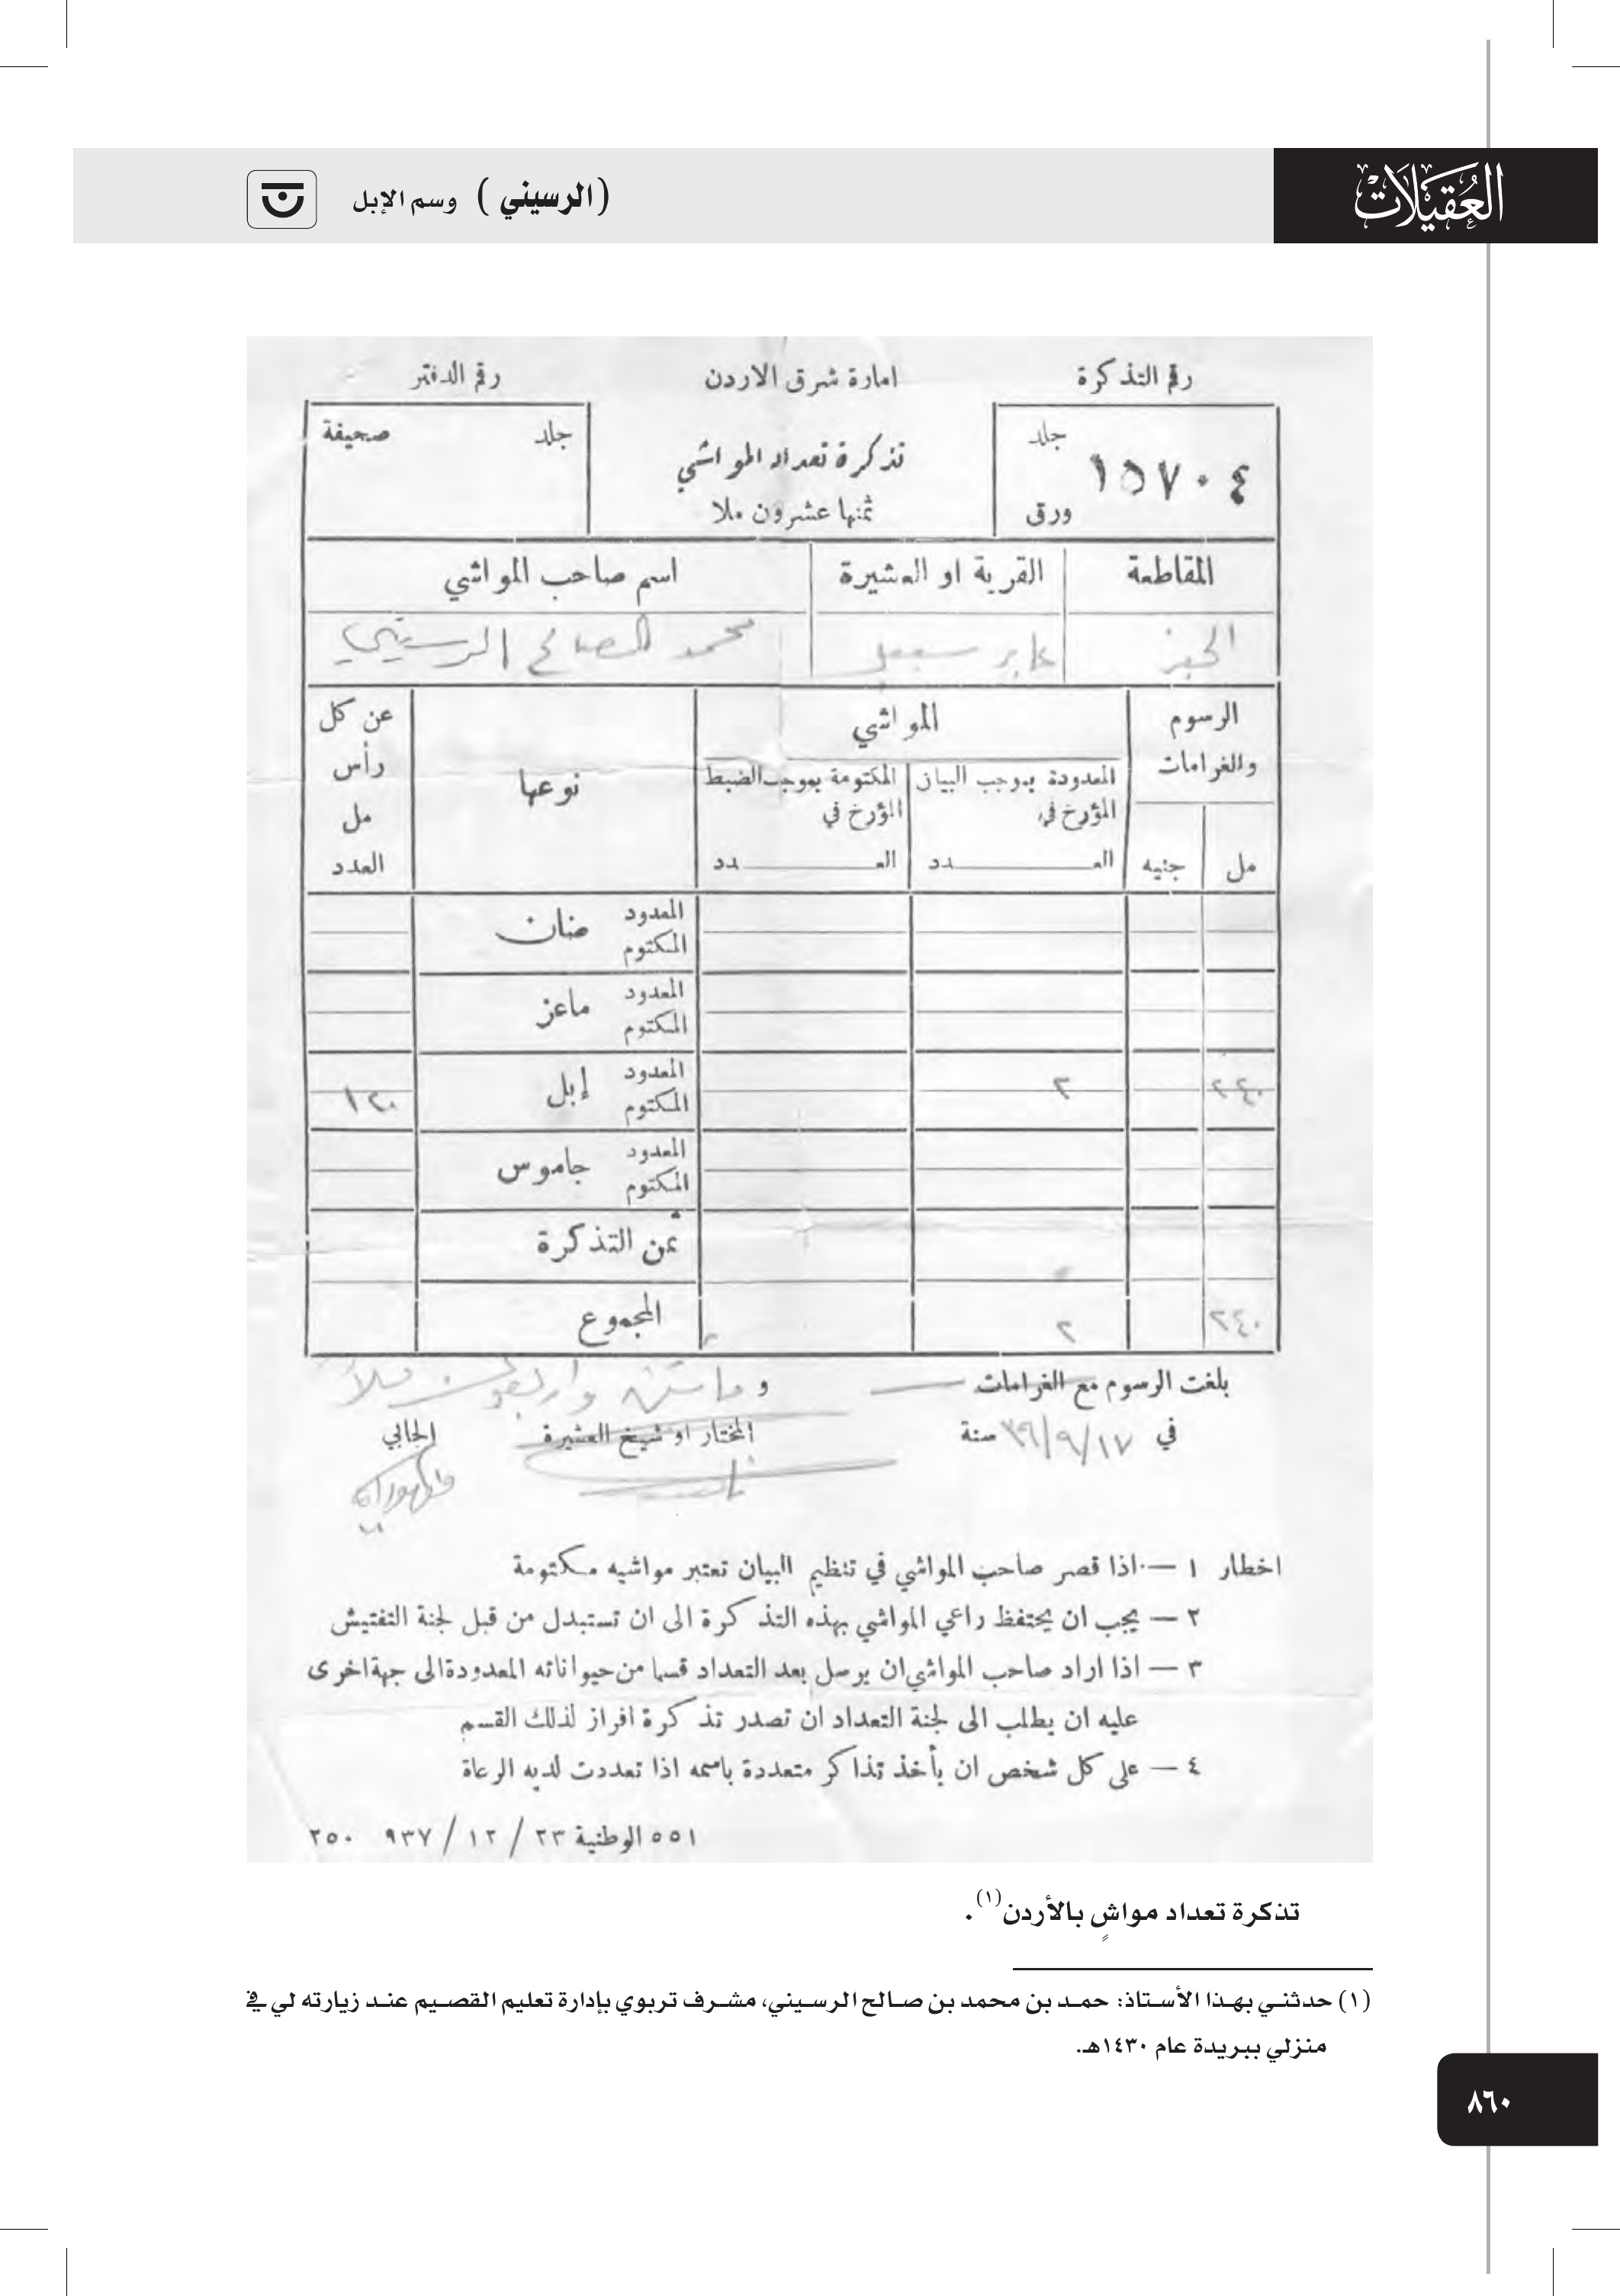 العُقَيْلَاتْ
(الرسيني) وسم الإبل
رقم التذكرة
امارة شرق الاردن
رقم الدفتر
جلد
١٥٧٠٤
ورق
تذكرة تعداد المواشي
ثمنها عشرون ملا
جلد صحيفة
المقاطعة القرية او العشيرة اسم صاحب المواشي
الجفر عابر سبيل محمد الصالح الرسيني
الرسوم والغرامات
مل جنيه
المواشي
المعدودة بموجب البيان المؤرخ في
العدد
المكتومة بموجب الضبط المؤرخ في
العدد
نوعها
عن كل
رأس
مل
العدد
المعدود
المكتوم
ضان
المعدود
المكتوم
ماعز
٢٤٠ ٢
المعدود
المكتوم
إبل
١٢٠
المعدود
المكتوم
جاموس
ثمن التذكرة
٢٤٠ ٢ المجموع
بلغت الرسوم مع الغرامات و مائتين واربعون ملاً
في ١٧/٩/٣٩ سنة المختار او شيخ العشيرة الجابي
اخطار ١ — اذا قصر صاحب المواشي في تنظيم البيان تعتبر مواشيه مكتومة
٢ — يجب ان يحتفظ راعي المواشي بهذه التذكرة الى ان تستبدل من قبل لجنة التفتيش
٣ — اذا اراد صاحب المواشي ان يرسل بعد التعداد قسما من حيواناته المعدودة الى جهة اخرى
عليه ان يطلب الى لجنة التعداد ان تصدر تذكرة افراز لذلك القسم
٤ — على كل شخص ان يأخذ تذاكر متعددة باسمه اذا تعددت لديه الرعاة
٥٥١ الوطنية ٢٣ / ١٢ / ٩٣٧ ٢٥٠
تذكرة تعداد مواشٍ بالأردن(١).
(١) حدثني بهذا الأستاذ: حمد بن محمد بن صالح الرسيني، مشرف تربوي بإدارة تعليم القصيم عند زيارته لي في
منزلي ببريدة عام ١٤٣٠هـ.
٨٦٠